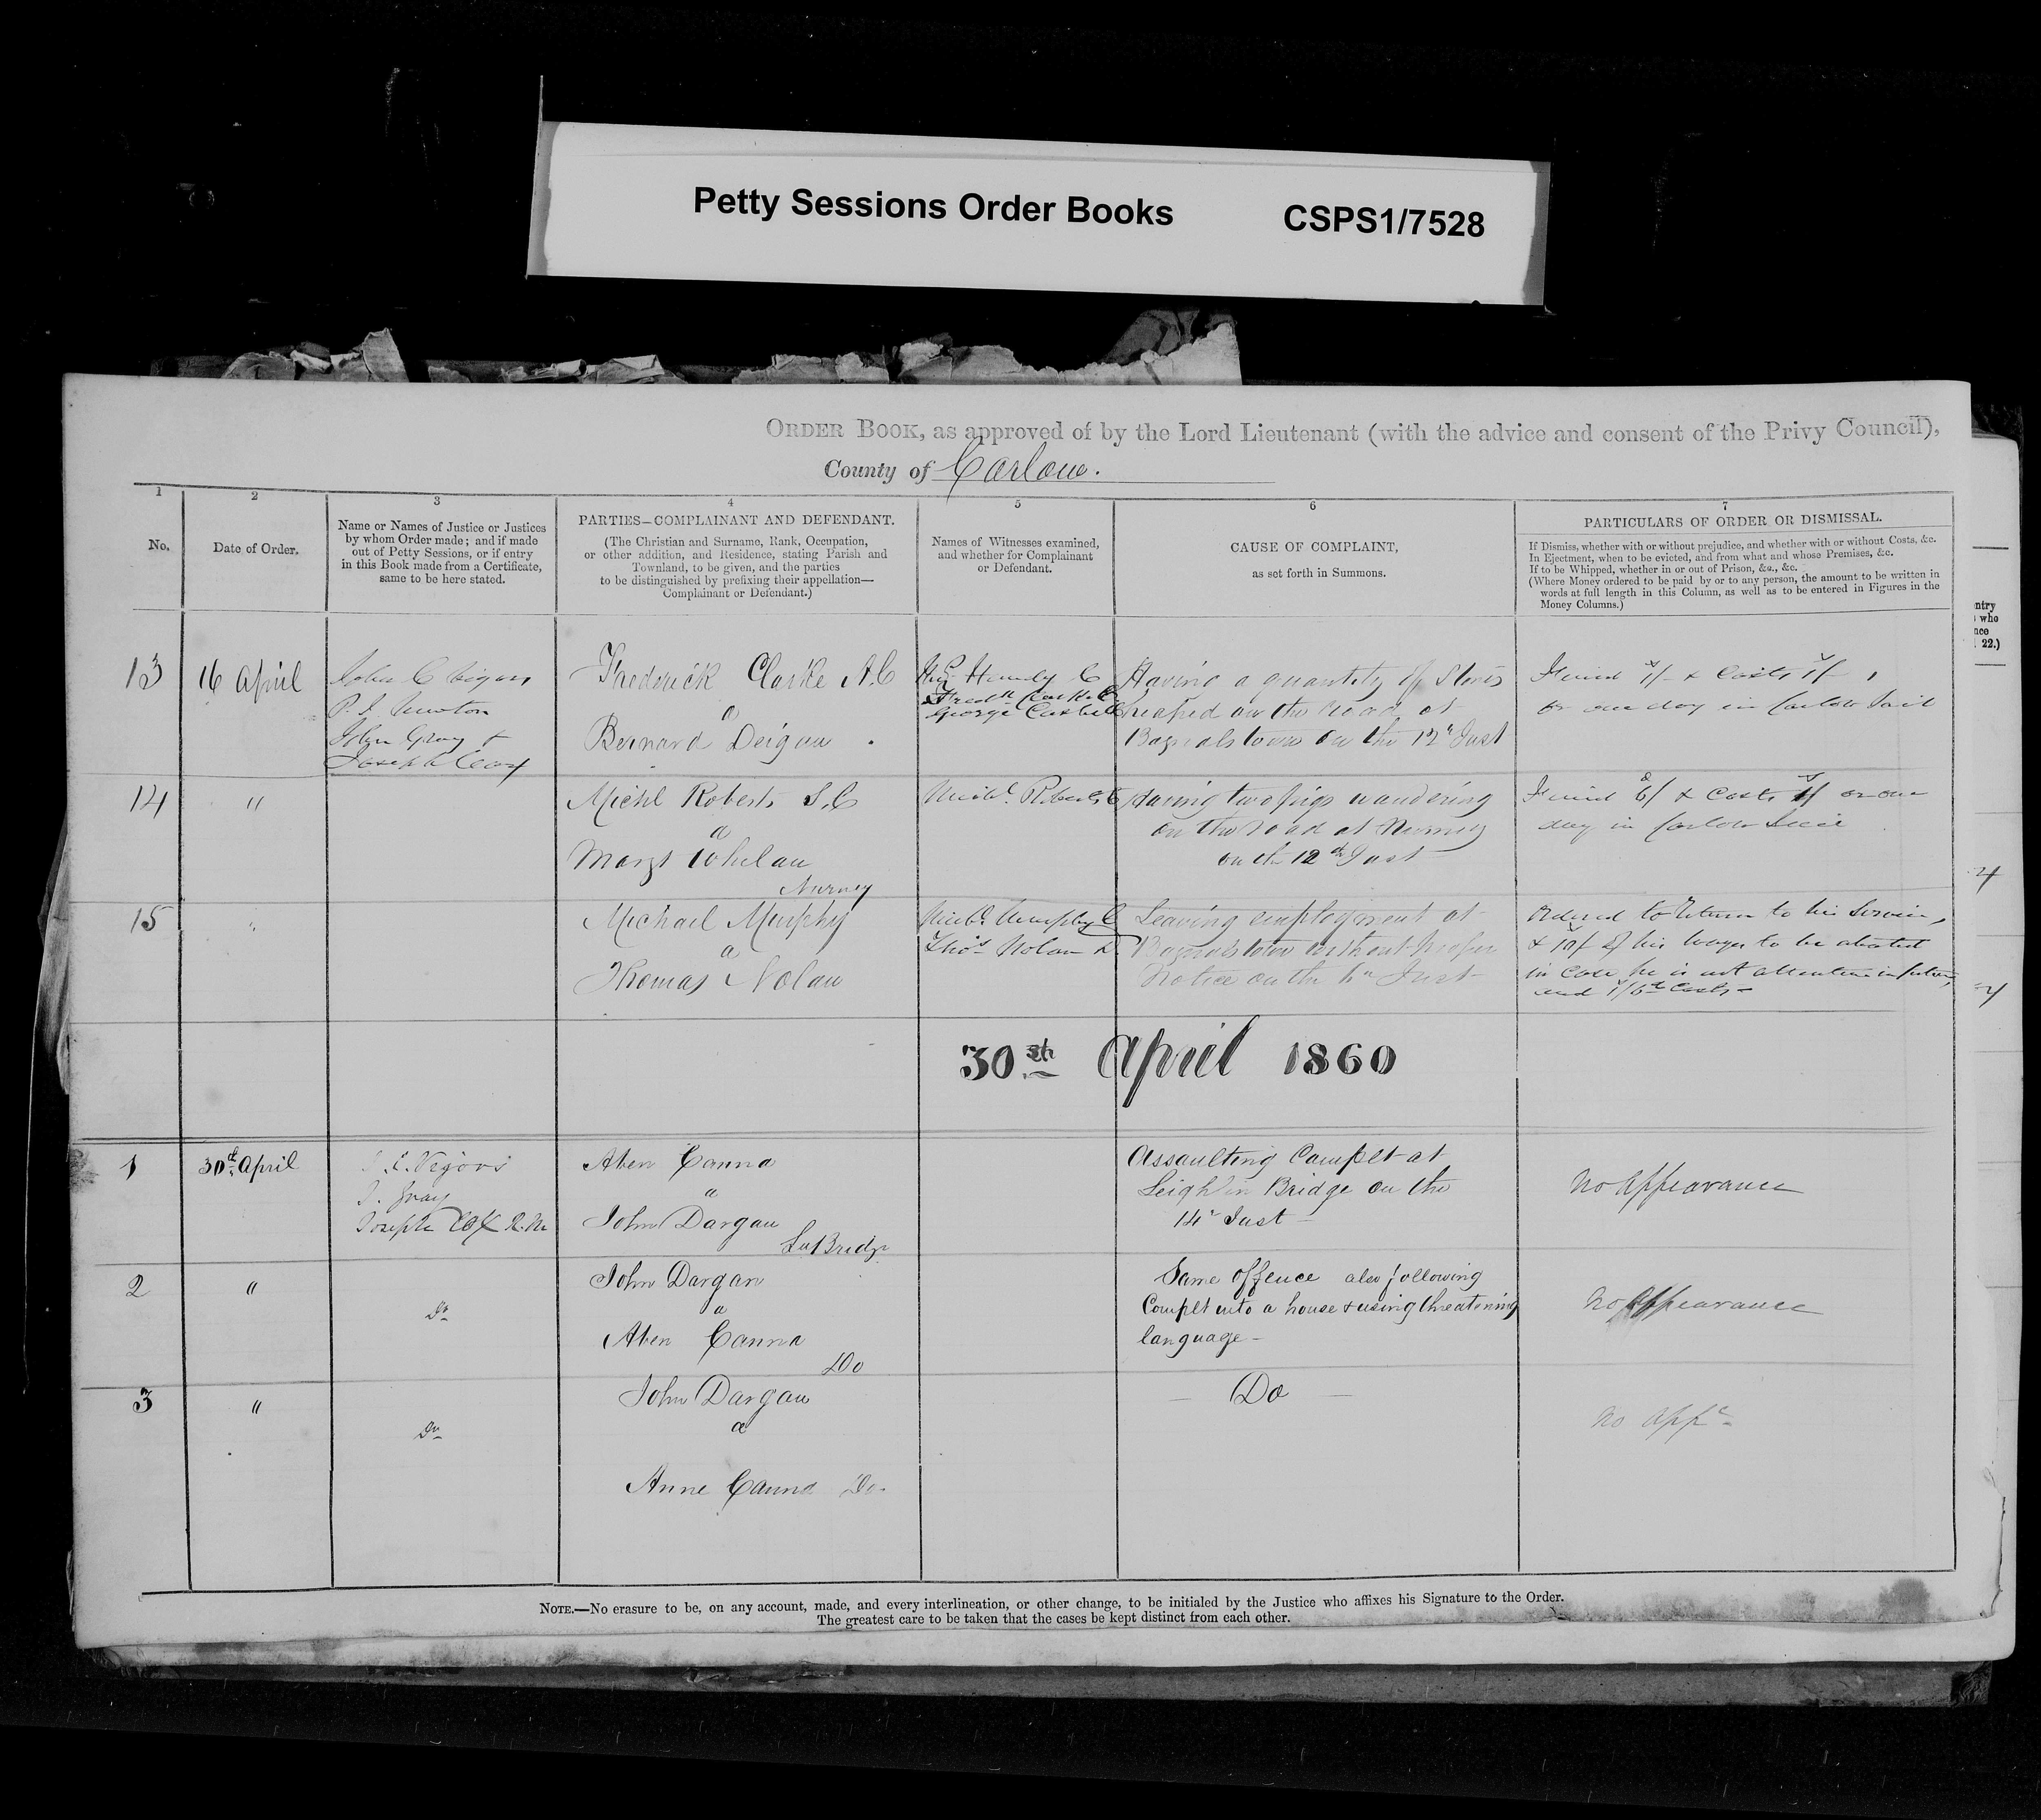 Petty Sessions Order Books CSPS1/7528
ORDER BOOK, as approved of by the Lord Lieutenant (with the advice and consent of the Privy Council),
County of Carlow.
1 2 3 4 5 6 7
No.
Date of Order.
Name or Names of Justice or Justices
by whom Order made; and if made
out of Petty Sessions, or if entry
in this Book made from a Certificate,
same to be here stated.
PARTIES—COMPLAINANT AND DEFENDANT.
(The Christian and Surname, Rank, Occupation,
or other addition, and Residence, stating Parish and
Townland, to be given, and the parties
to be distinguished by prefixing their appellation—
Complainant or Defendant.)
Names of Witnesses examined,
and whether for Complainant
or Defendant.
CAUSE OF COMPLAINT,
as set forth in Summons.
PARTICULARS OF ORDER OR DISMISSAL.
If Dismiss, whether with or without prejudice, and whether with or without Costs, &c.
In Ejectment, when to be evicted, and from what and whose Premises, &c.
If to be Whipped, whether in or out of Prison, &c., &c.
(Where Money ordered to be paid by or to any person, the amount to be written in
words at full length in this Column, as well as to be entered in Figures in the
Money Columns.)
ntry
who
nce
22.)
13
16 April
John C
P. J. Newton
John Gray &
Joseph Cox
Frederick Clarke A.C
a
Bernard Deigan
C
Fredk Clarke C
George C
Having a quantity of Stones
heaped on the road at
Bagnalstown on the 12th Inst
Fined 1/- & Costs 1/
or one day in Carlow Jail
14
"
Michl Roberts S.C
a
Margt Whelan
Nurney
Michl. Roberts C
Having two pigs wandering
on the road at Nurney
on the 12th Inst
Fined 6/ & Costs 1/ or one
day in Carlow
15
"
Michael Murphy
a
Thomas Nolan
Michl. Murphy C
Thos Nolan D.
Leaving employment at
Bagnalstown without proper
Notice on the Inst
Ordered to return to his Service,
& 10/ of his wages to be abated
in case he is not attentive in future,
and 1/6d Costs
30th April 1860
1
30th April
S. C. Vigors
J. Gray
Joseph Cox R.M
Aben Canna
a
John Dargan
LnBridge
Assaulting Complt at
Leighlin Bridge on the
14th Inst
No Appearance
2
"
Do
John Dargan
a
Aben Canna
Do
Same offence also following
Complt into a house & using threatening
language
No Appearance
3
"
Do
John Dargan
a
Anne Canna Do
Do
No Appce
NOTE.—No erasure to be, on any account, made, and every interlineation, or other change, to be initialed by the Justice who affixes his Signature to the Order.
The greatest care to be taken that the cases be kept distinct from each other.